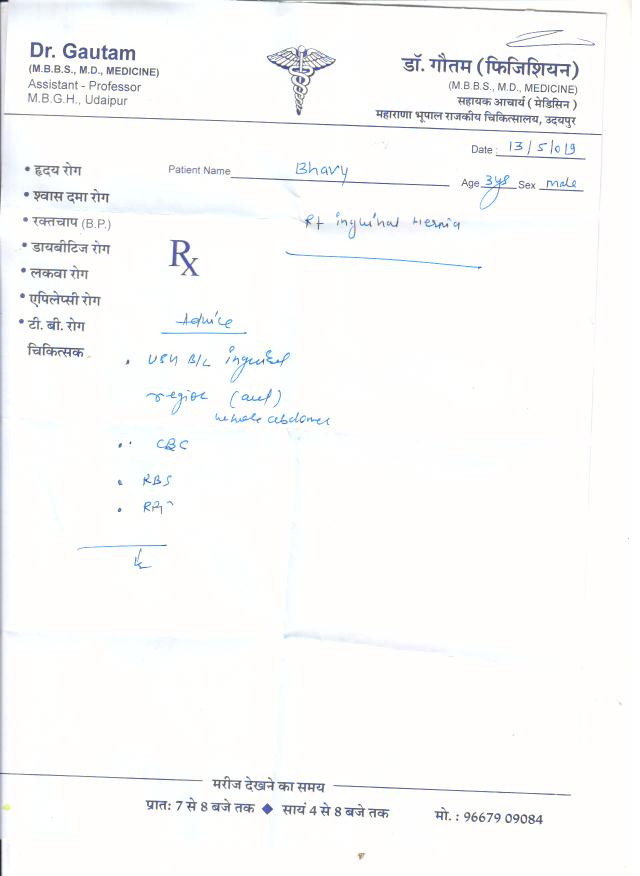 Dr. Gautam
(M.B.B.S., M.D., MEDICINE)
Assistant - Professor
M.B.G.H., Udaipur
डॉ. गौतम (फिजिशियन)
(M.B.B.S., M.D., MEDICINE)
सहायक आचार्य ( मेडिसिन )
महाराणा भूपाल राजकीय चिकित्सालय, उदयपुर
Date : 13/5/019
Patient Name Bhavy
Age 3 ys Sex male
• हृदय रोग
• श्वास दमा रोग
• रक्तचाप (B.P.)
• डायबीटिज रोग
• लकवा रोग
• एपिलेप्सी रोग
• टी. बी. रोग
चिकित्सक
Rt inguinal Hernia
Rx
Advice
• USG B/L inguinal
region (and)
whole abdomen
• CBC
• RBS
मरीज देखने का समय
प्रात: 7 से 8 बजे तक ◆ सायं 4 से 8 बजे तक
मो. : 96679 09084